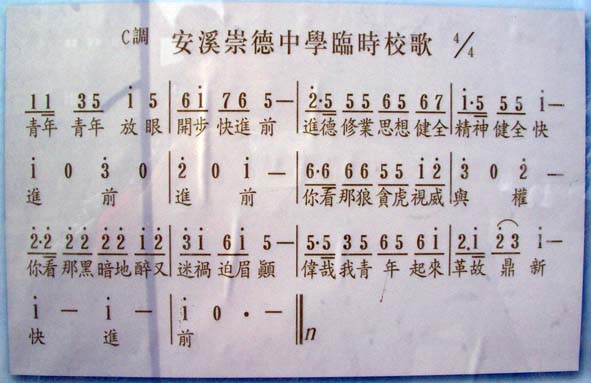 C調 安溪崇德中學臨時校歌 4/4
1 1 3 5 i̇ 5 | 6 i̇ 7 6 5 — | 2̇·5 5 5 6 5 6 7 | i̇·5 5 5 i̇ —
青年 青年 放眼 開步 快進 前 進德 修業 思想 健全 精神 健全 快
i̇ 0 3̇ 0 | 2̇ 0 i̇ — | 6·6 6 6 5 5 i̇ 2̇ | 3̇ 0 2̇ —
進 前 進 前 你看 那狼 貪虎 視威 與 權
2̇·2̇ 2̇ 2̇ 2̇ 2̇ i̇ 2̇ | 3̇ i̇ 6 i̇ 5 — | 5·5 3 5 6 5 6 i̇ | 2̇·i̇ 2̇ 3̇ i̇ —
你看 那黑 暗地 醉又 迷禍 迫眉 顚 偉哉 我青 年 起來 革故 鼎 新
i̇ — i̇ — | i̇ 0 · — ‖ n
快 進 前